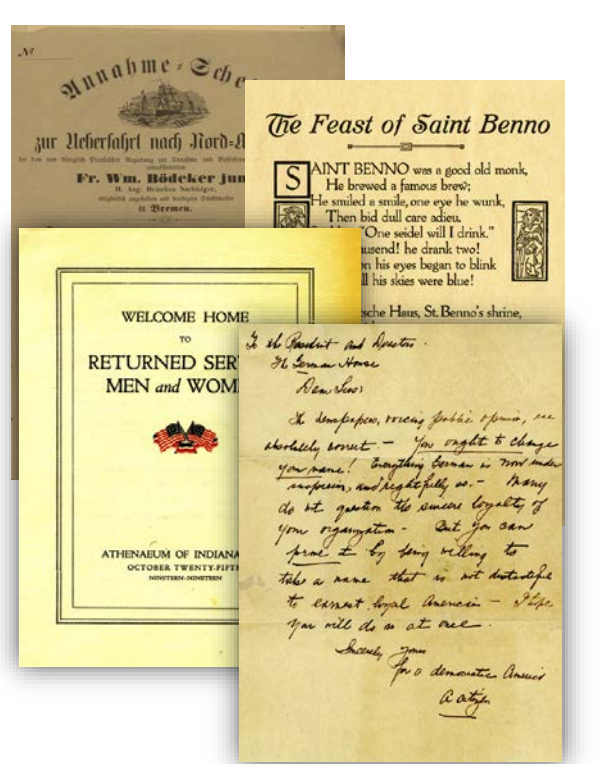 Nº
Annahme-Sche
zur Ueberfahrt nach Nord-A
Fr. Wm. Bödeker jun
H. Aug. Heineken Nachfolger,
in Bremen.
The Feast of Saint Benno
SAINT BENNO was a good old monk,
He brewed a famous brew;
He smiled a smile, one eye he wunk,
Then bid dull care adieu.
"One seidel will I drink."
ausend! he drank two!
n his eyes began to blink
ll his skies were blue!
sche Haus, St. Benno's shrine,
WELCOME HOME
TO
RETURNED SERV
MEN and WOM
ATHENAEUM OF INDIANA
OCTOBER TWENTY-FIFTH
NINETEEN-NINETEEN
To the President and Directors.
The German House
Dear Sirs:
The newspapers, voicing public opinion, are
absolutely correct — You ought to change
your name! Everything German is now under
suspicion, and rightfully so. — Many
do not question the sincere loyalty of
your organization - But you can
prove it by being willing to
take a name that is not distasteful
to earnest loyal Americans — I hope
you will do so at once.
Sincerely yours
for a democratic America
A citizen